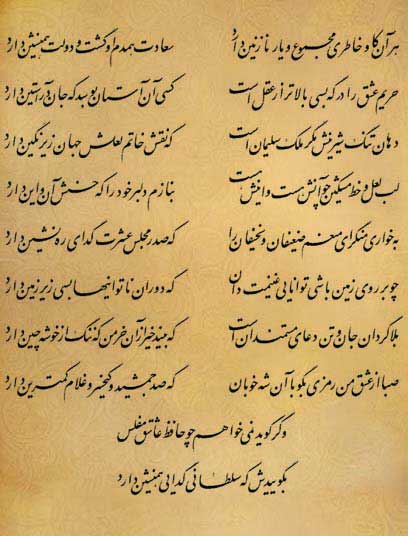 هرآن کاو خاطری مجموع و یار نازنین دارد سعادت همدم او گشت و دولت همنشین دارد
حریم عشق را درگه بسی بالاتر از عقل است کسی آن آستان بوسد که جان در آستین دارد
دهان تنگ شیرینش مگر ملک سلیمان است که نقش خاتم لعلش جهان زیر نگین دارد
لب لعل و خط مشکین چو آنش هست و اینش هست بنازم دلبر خود را که حسنش آن و این دارد
به خواری منگر ای منعم ضعیفان و نحیفان را که صدر مجلس عشرت گدای ره نشین دارد
چو بر روی زمین باشی توانایی غنیمت دان که دوران ناتوانیها بسی زیر زمین دارد
بلاگردان جان و تن دعای مستمندان است که بیند خیر از آن خرمن که ننگ از خوشه چین دارد
صبا از عشق من رمزی بگو با آن شه خوبان که صد جمشید و کیخسرو غلام کمترین دارد
وگر گوید نمی خواهم چو حافظ عاشق مفلس
بگوییدش که سلطانی گدایی همنشین دارد